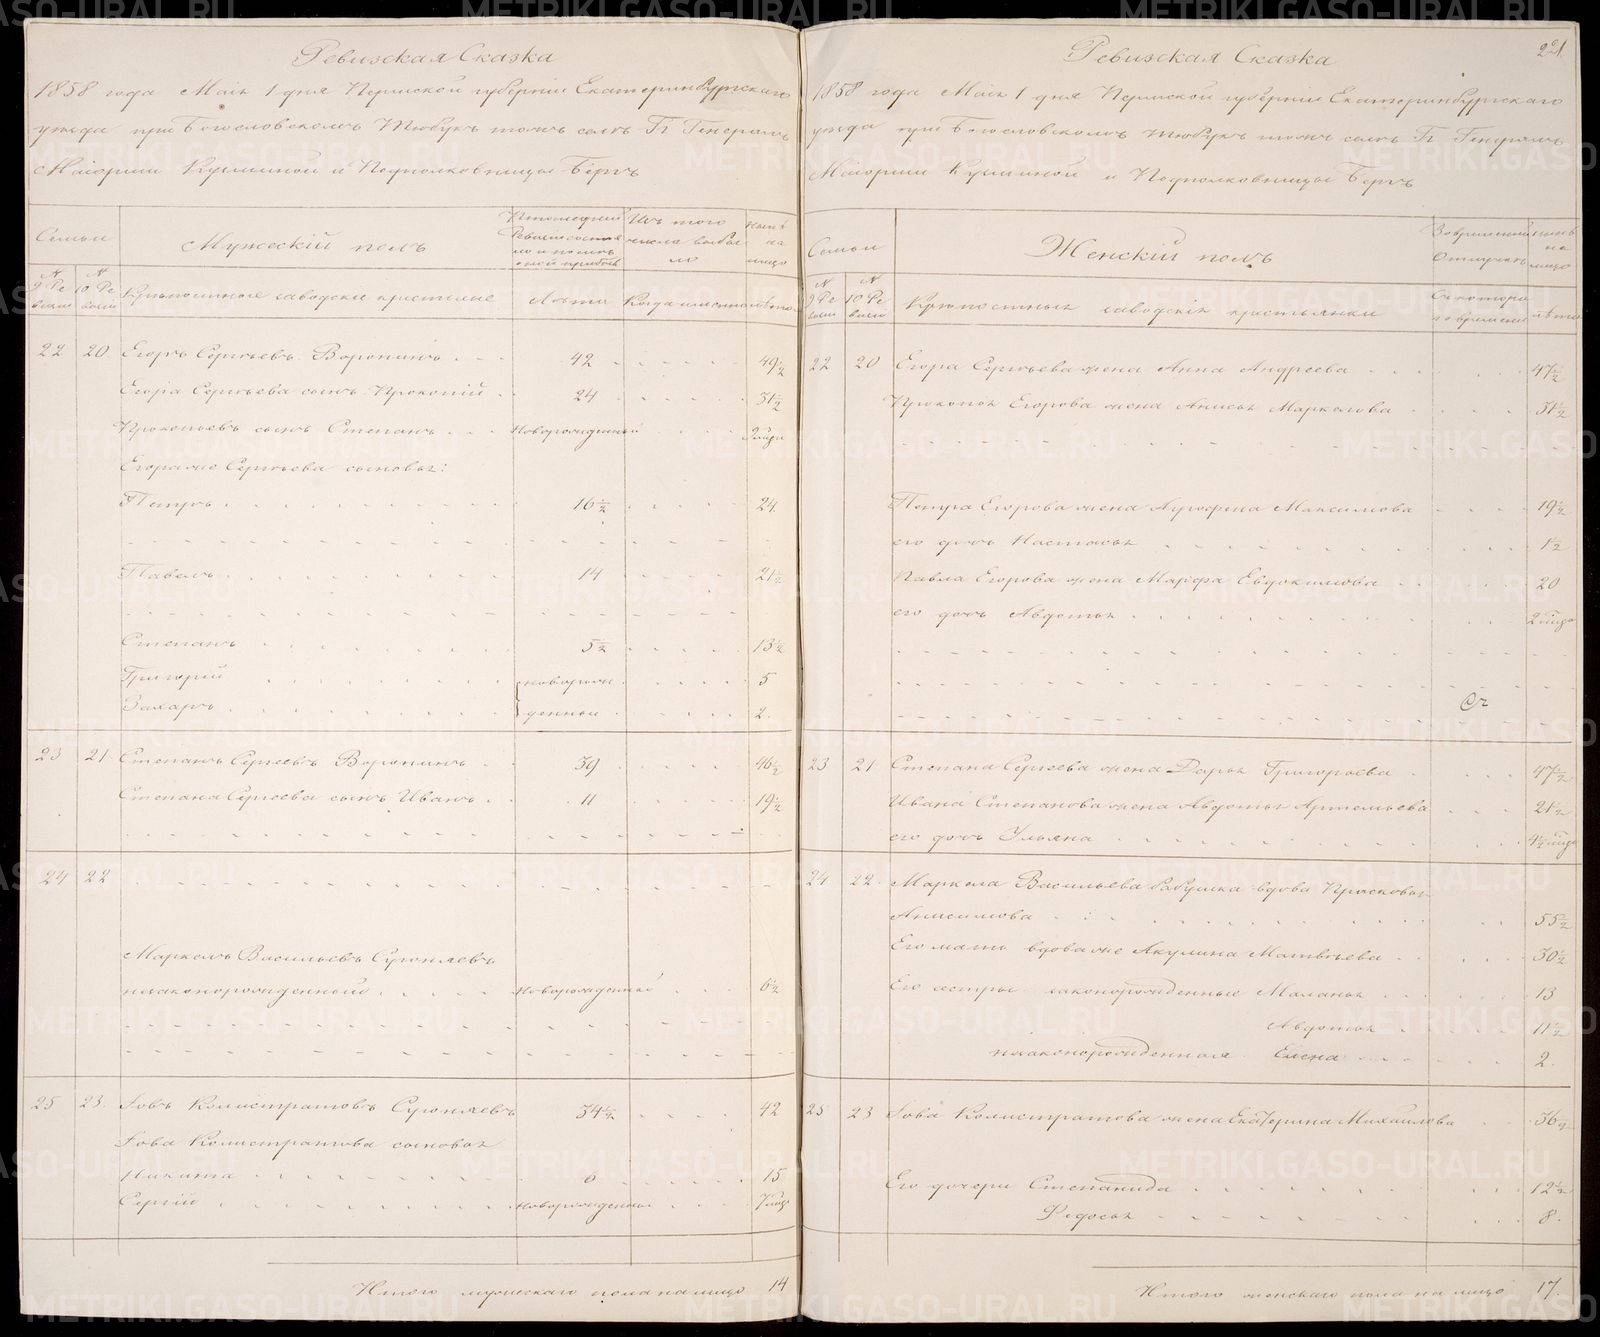 Ревизская Сказка
1858 года Маія 1 дня Пермской губерніи Екатеринбургскаго
уезда при Богословскомъ Тюбукъ тожъ селѣ Гг Генералъ
Маіорши Кузьминой и Подполковницы Бергъ
Семьи
Мужескій полъ
Изъ того числа выбыло
Нынѣ на лицо
№ 9 Ревизіи
№ 10 Ревизіи
Крѣпостные заводскіе крестьяне
Лѣта
Когда именно
лѣта
22 20 Егоръ Сергѣевъ Воронинъ 42 49½
Егора Сергѣева сынъ Прокопій 24 31½
Прокопьевъ сынъ Степанъ новорожденный
Егора же Сергѣева сыновья:
Петръ 16½ 24
Павелъ 14 21½
Степанъ 5½ 13½
Григорій новорож 5
Захаръ денные 2
23 21 Степанъ Сергѣевъ Воронинъ 39 46½
Степана Сергѣева сынъ Иванъ 11 19½
24 22
Маркелъ Васильевъ
незаконорожденный новорожденный 6½
25 23 Іовъ Колистратовъ 34½ 42
Іова Колистратова сыновья
Никита 15
Сергій новорожденный
Итого мужескаго пола на лицо 14
Ревизская Сказка
1858 года Маія 1 дня Пермской губерніи Екатеринбургскаго
уезда при Богословскомъ Тюбукъ тожъ селѣ Гг Генералъ
Маіорши Кузьминой и Подполковницы Бергъ
Семьи
Женскій полъ
Во временной отлучкѣ
нынѣ на лицо
№ 9 Ревизіи
№ 10 Ревизіи
Крѣпостныя заводскія крестьянки
Съ котораго времени
лѣта
22 20 Егора Сергѣева жена Анна Андреева 47½
Прокопья Егорова жена Анисья Маркелова 31½
Петра Егорова жена Максимова 19½
его дочь Настасья 1½
Павла Егорова жена Марфа Евдокимова 20
его дочь Авдотья
23 21 Степана Сергѣева жена Дарья Григорьева 47½
Ивана Степанова жена Авдотья Артемьева 21½
его дочь Ульяна
24 22 Маркела Васильева бабушка вдова Прасковья
Анисимова 55½
Его мать вдова же Акулина Матвѣева 30½
Его сестры законорожденные Маланья 13
Авдотья 11½
незаконорожденная Елена 2
25 23 Іова Колистратова жена Екатерина Михаилова 36½
Его дочери Степанида 12½
Федосья 8
Итого женскаго пола на лицо 17
METRIKI.GASO-URAL.RU